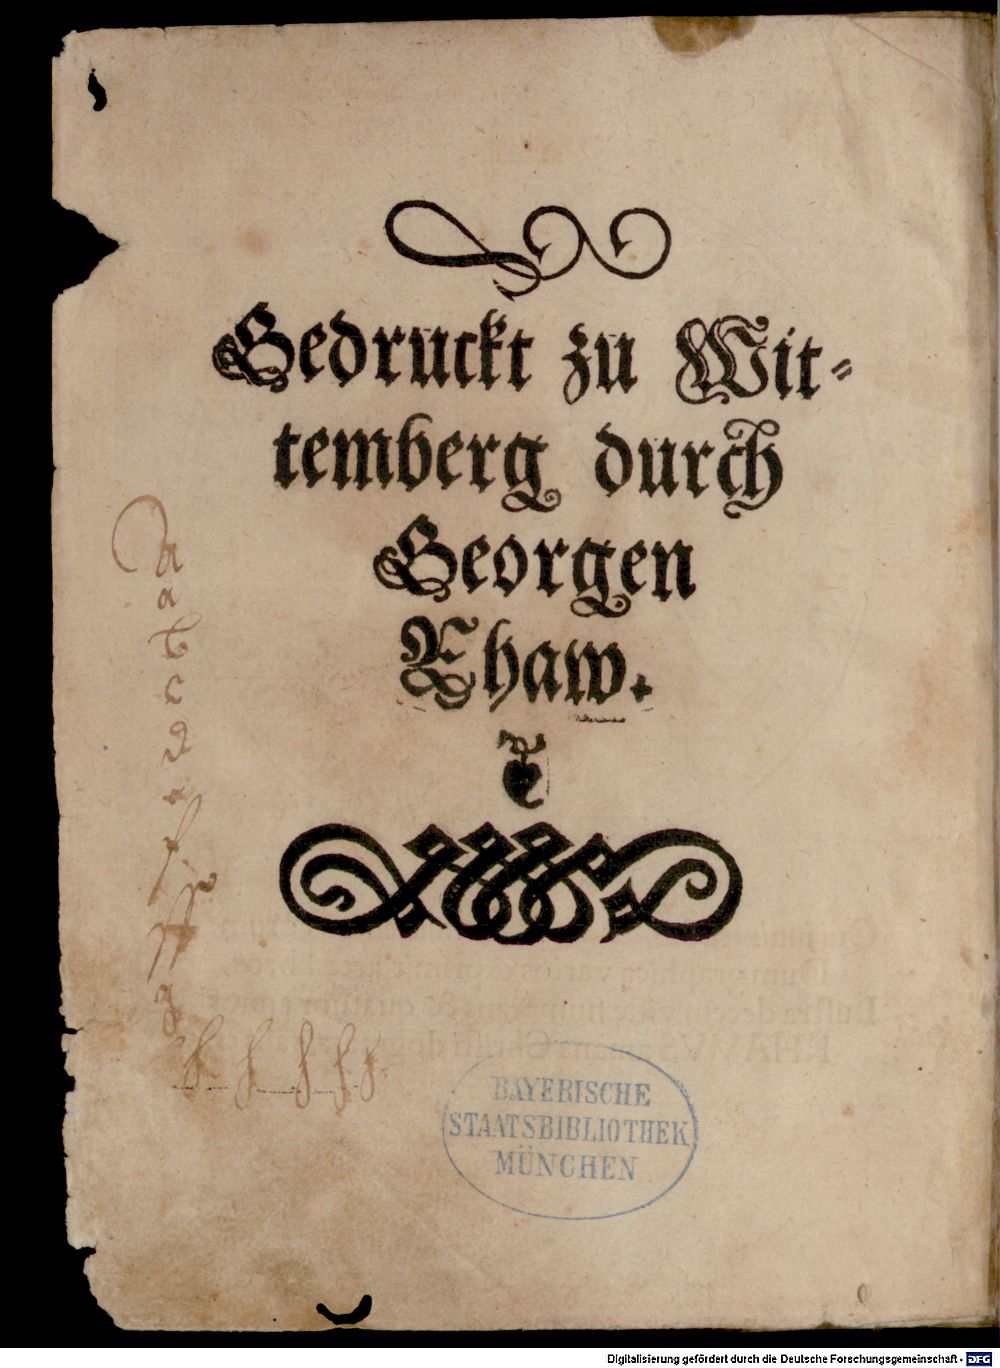 Gedruckt zu Wit⸗
temberg durch
Georgen
Rhaw.
a
b
c
d
e
f
g
BAYERISCHE
STAATSBIBLIOTHEK
MÜNCHEN
Digitalisierung gefördert durch die Deutsche Forschungsgemeinschaft - DFG